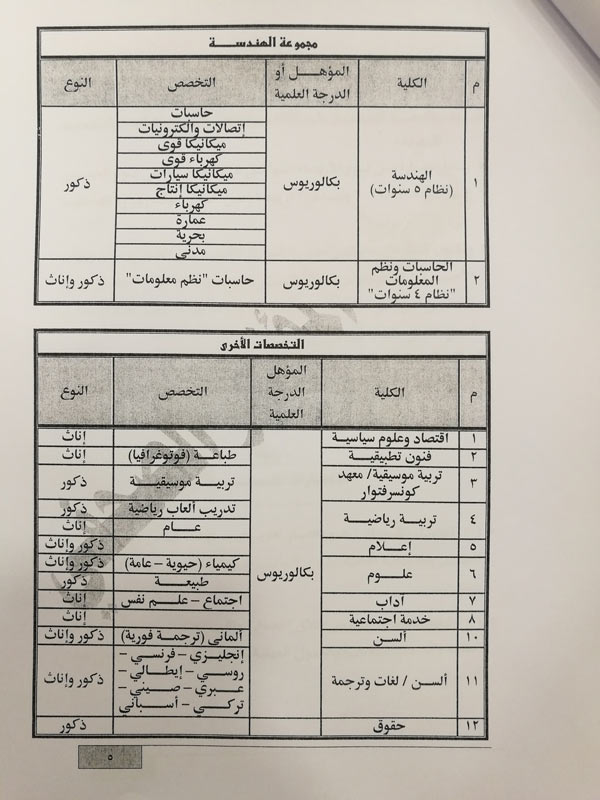 مجموعة الهندســـة
م الكلية المؤهــل أو الدرجة العلمية التخصص النوع
١ الهندسة (نظام ٥ سنوات) بكالوريوس ذكور
حاسبات
إتصالات والكترونيات
ميكانيكا قوى
كهرباء قوى
ميكانيكا سيارات
ميكانيكا إنتاج
كهرباء
عمارة
بحرية
مدنى
٢ الحاسبات ونظم المعلومات "نظام ٤ سنوات" بكالوريوس حاسبات "نظم معلومات" ذكور وإناث
التخصصات الأخرى
م الكلية المؤهل الدرجة العلمية التخصص النوع
بكالوريوس
١ اقتصاد وعلوم سياسية إناث
٢ فنون تطبيقية طباعة (فوتوغرافيا) إناث
٣ تربية موسيقية/ معهد كونسرفتوار تربية موسيقية ذكور
٤ تربية رياضية تدريب ألعاب رياضية ذكور
عام إناث
٥ إعلام ذكور وإناث
٦ علوم كيمياء (حيوية – عامة) ذكور وإناث
طبيعة ذكور
٧ آداب اجتماع – علم نفس إناث
٨ خدمة اجتماعية إناث
١٠ ألسن ألماني (ترجمة فورية) ذكور وإناث
١١ ألسن / لغات وترجمة ذكور وإناث
إنجليزي – فرنسي –
روسي – إيطالي –
عبري – صيني –
تركي – أسباني
١٢ حقوق ذكور
٥